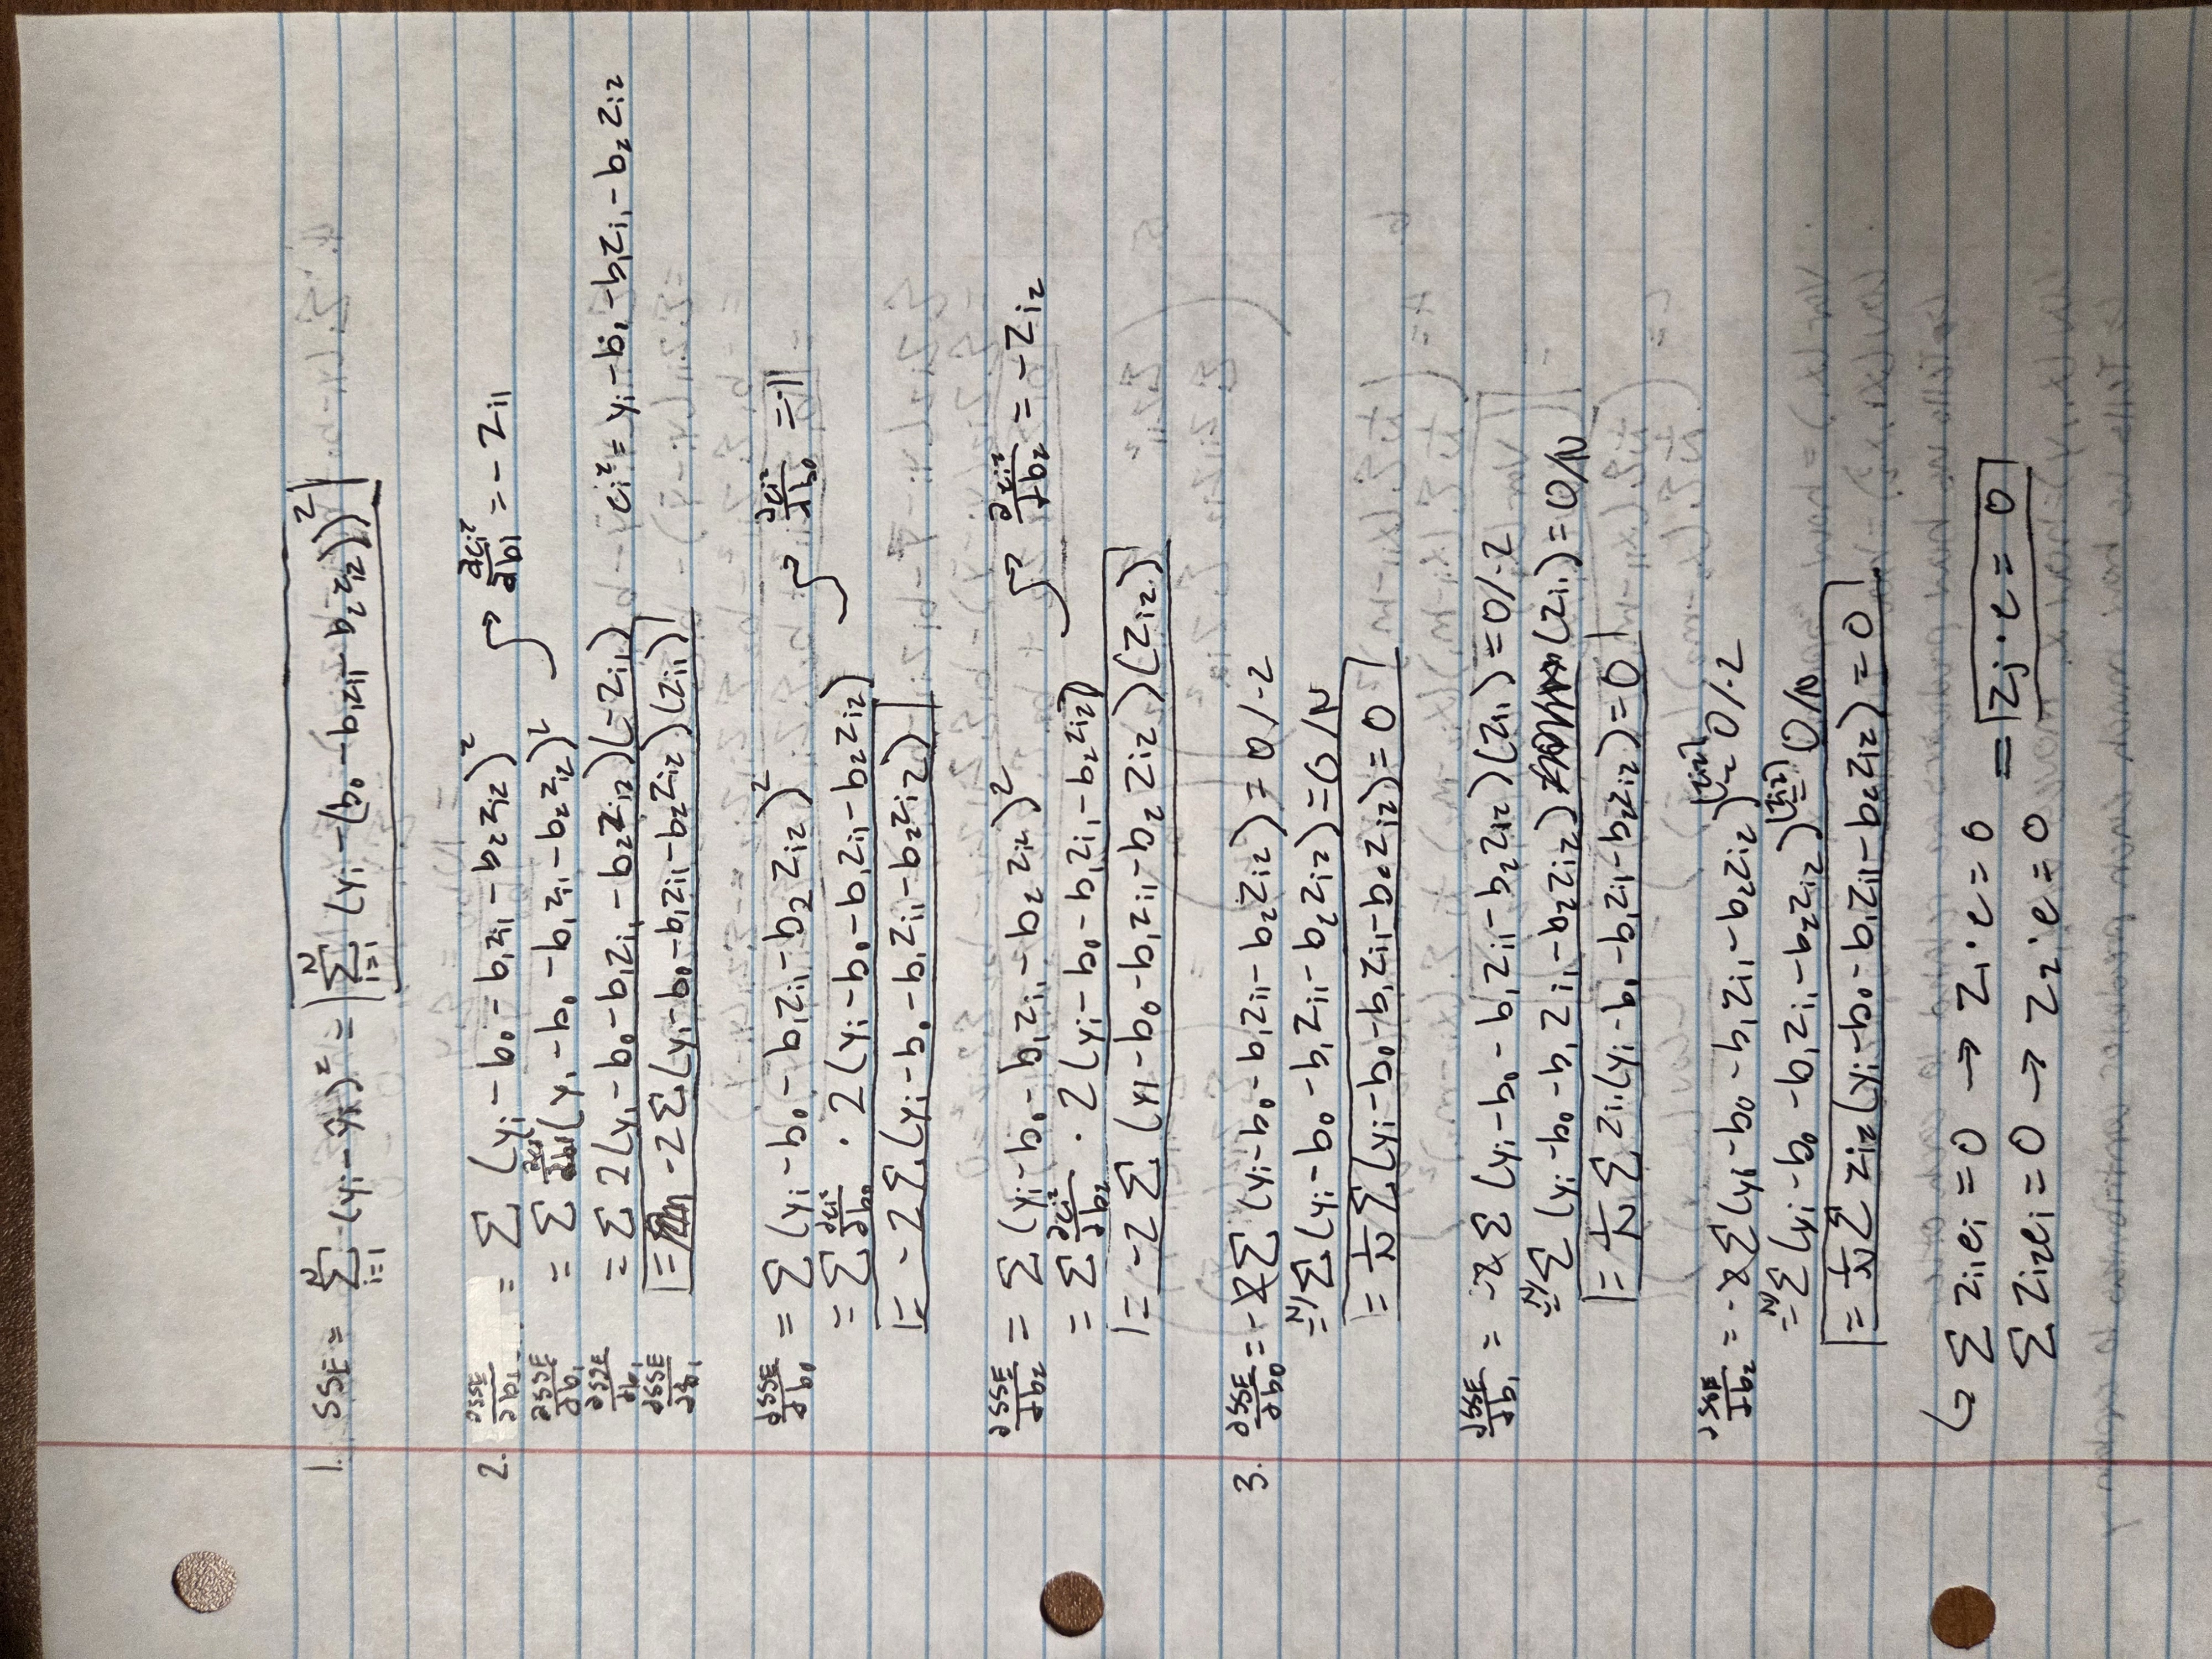 1. SSE = Σ_{i=1}^{N} (yi - ŷi)² = Σ_{i=1}^{N} (yi - (b₀ - b₁zi1 - b₂zi2))²
2. ∂SSE/∂b₁ = Σ (yi - b₀ - b₁zi1 - b₂zi2)² → ∂ei²/∂b1 = -zi1
∂SSE/∂b₁ = Σ ∂ei²/∂b1 (yi - b₀ - b₁zi1 - b₂zi2)²
∂SSE/∂b₁ = Σ 2(yi - b₀ - b₁zi1 - b₂zi2)(-zi1) ei² = yi - b₀ - b₁zi1 - b₂zi2
∂SSE/∂b₁ = -2Σ(yi - b₀ - b₁zi1 - b₂zi2)(zi1)
∂SSE/∂b₀ = Σ (yi - b₀ - b₁zi1 - b₂zi2)² → ∂ei²/∂b₀ = -1
= Σ ∂ei²/∂b₀ · 2(yi - b₀ - b₁zi1 - b₂zi2)
= -2Σ(yi - b₀ - b₁zi1 - b₂zi2)
∂SSE/∂b₂ = Σ (yi - b₀ - b₁zi1 - b₂zi2)² → ∂ei²/∂b₂ = -zi2
= Σ ∂ei²/∂b₂ · 2(yi - b₀ - b₁zi1 - b₂zi2)
= -2Σ (yi - b₀ - b₁zi1 - b₂zi2)(zi2)
3. ∂SSE/∂b₀ = -2Σ (yi - b₀ - b₁zi1 - b₂zi2) = 0/-2
= N/Σ(yi - b₀ - b₁zi1 - b₂zi2) = 0/N
= 1/N Σ(yi - b₀ - b₁zi1 - b₂zi2) = 0
∂SSE/∂b₁ = -2Σ (yi - b₀ - b₁zi1 - b₂zi2)(zi1) = 0/-2
= N/Σ (yi - b₀ - b₁zi1 - b₂zi2)(zi1) = 0/N
= 1/N Σ zi1(yi - b₀ - b₁zi1 - b₂zi2) = 0
∂SSE/∂b₂ = -2Σ(yi - b₀ - b₁zi1 - b₂zi2)(zi2) = 0/-2
= N/Σ(yi - b₀ - b₁zi1 - b₂zi2)(zi2) = 0/N
= 1/N Σ zi2(yi - b₀ - b₁zi1 - b₂zi2) = 0
↳ Σ zi1ei = 0 → z₁·e = 0
= zj·e = 0
Σ zi2ei = 0 → z₂·e = 0